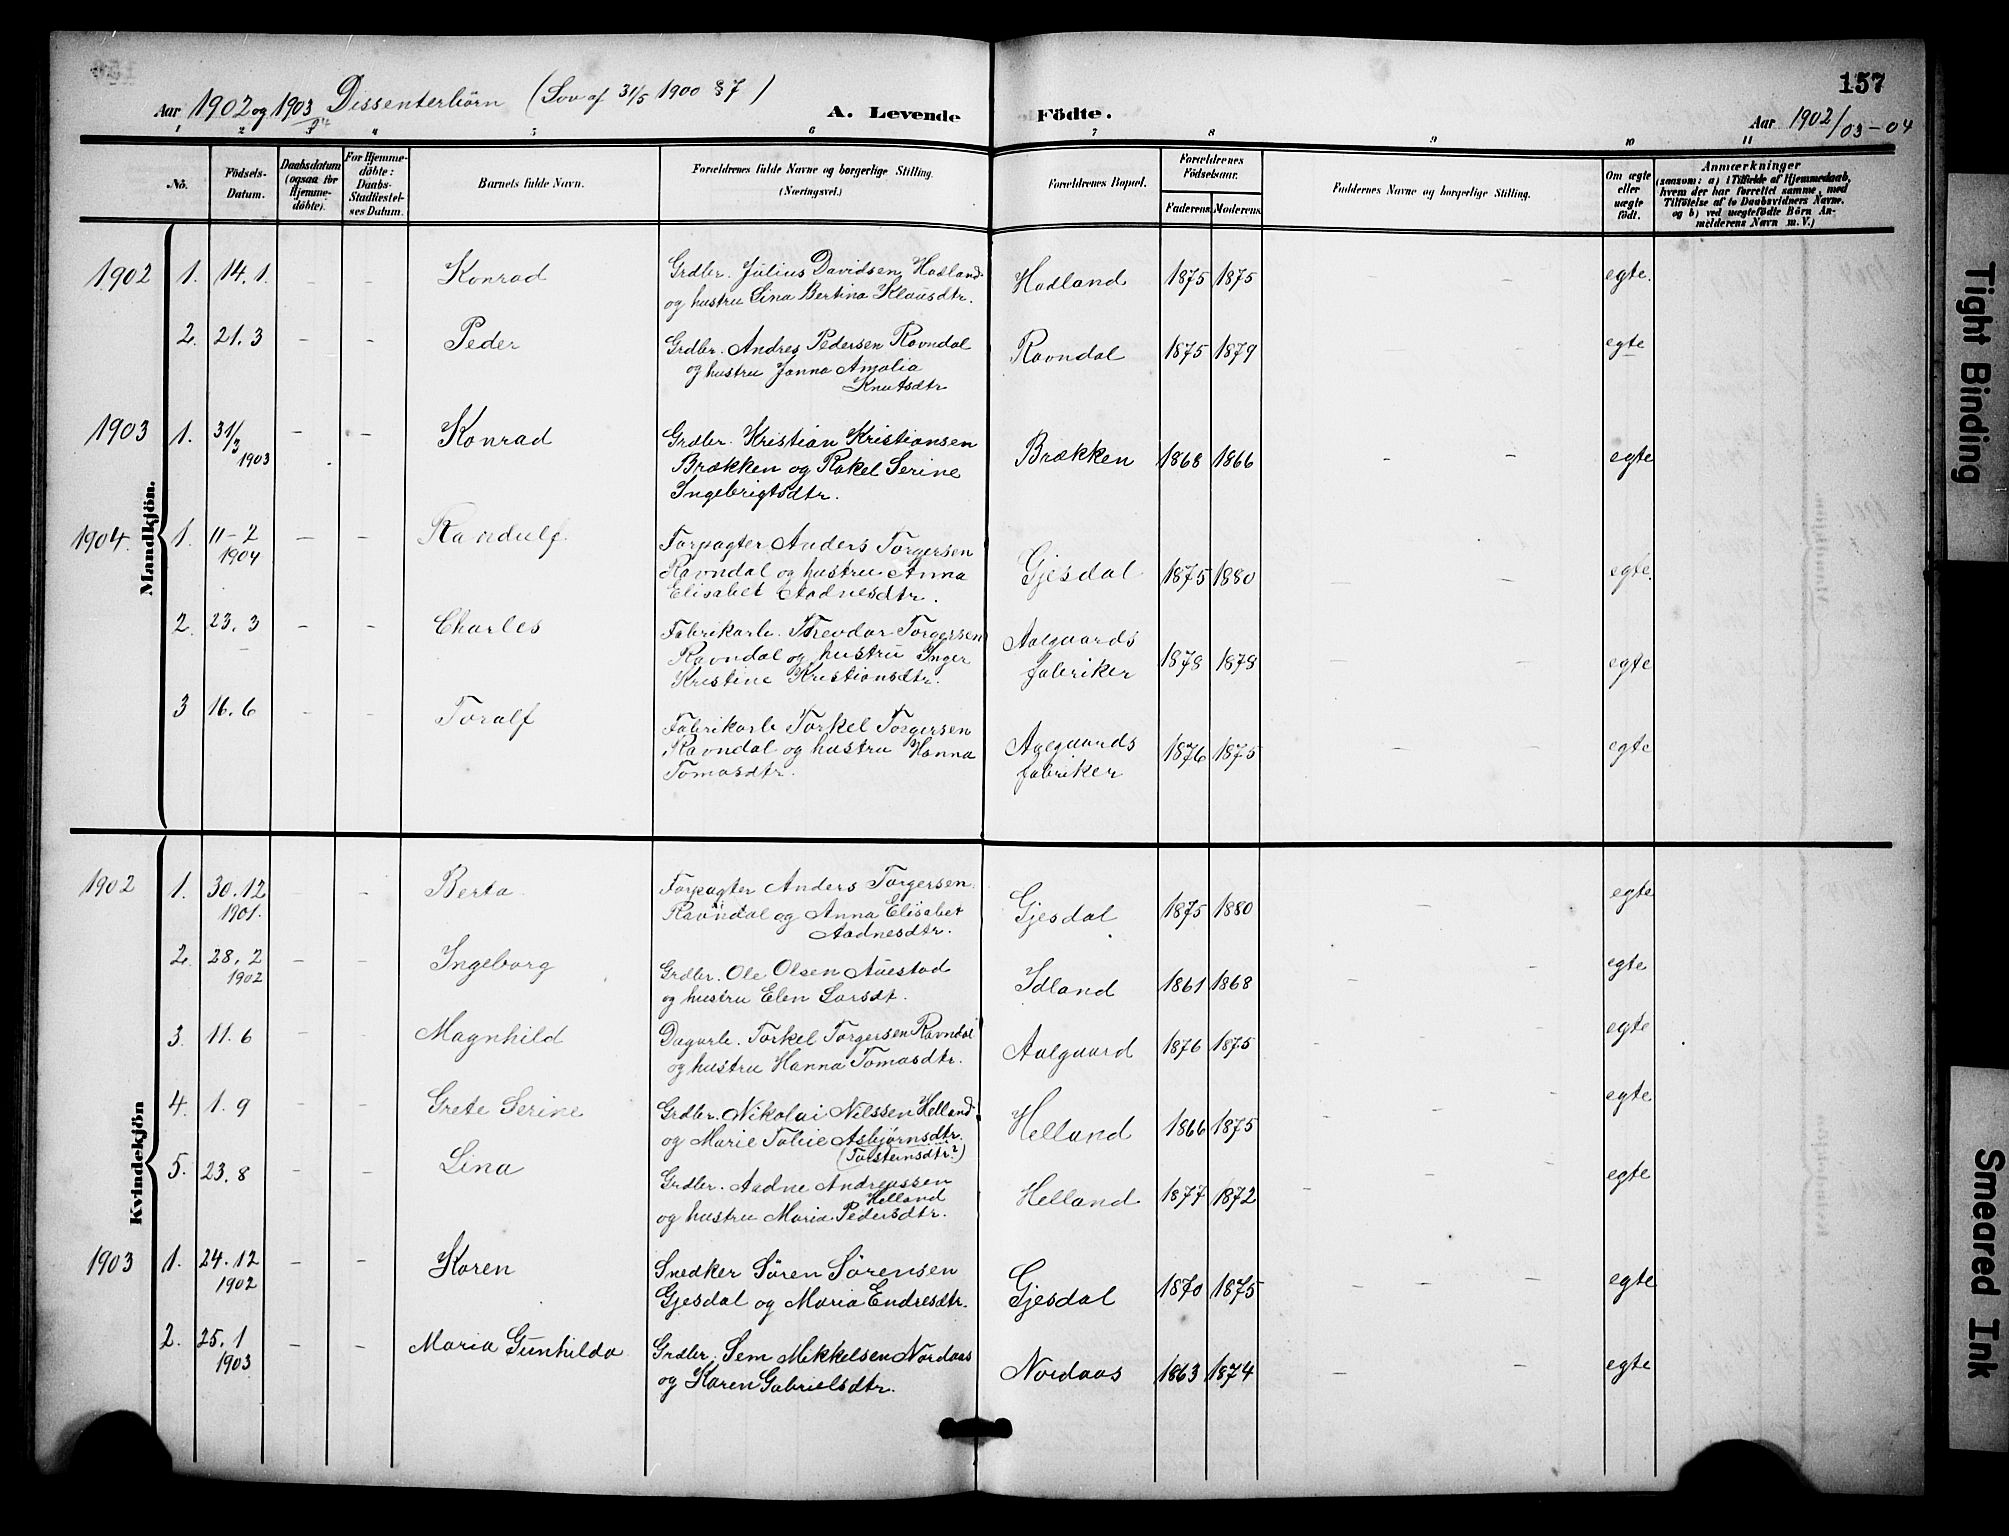 157
Aar 1902 og 1903 Dissenterbörn (Lov af 31/5 1900 § 7)
04
A. Levende Födte.
Aar 1902/03-04
1 2 3 4 5 6 7 8 9 10 11
No. Födsels-Datum. Daabsdatum (ogsaa for Hjemme-döbte). For Hjemme-döbte: Daabs-Stadfæstel-ses Datum. Barnets fulde Navn. Forældrenes fulde Navne og borgerlige Stilling. (Næringsvei.) Forældrenes Bopæl. Forældrenes Födselsaar. Faderens Moderens Faddernes Navne og borgerlige Stilling. Om ægte eller uægte födt. Anmærkninger (saasom: a) i Tilfælde af Hjemmedaab, hvem der har forrettet samme, med Tilföielse af to Daabsvidners Navne, og b) ved uægtefödte Börn An-melderens Navn m. V.)
Mandkjön.
1902 1. 14.1. - - Konrad Grdbr. Julius Davidsen Hadland Hadland 1875 1875 - - egte.
og hustru Lina Bertina Klausdtr.
2. 21.3 - - Peder Grdbr. Andres Pedersen Ravndal Ravndal 1875 1879 - - egte
og hustru Janna Amalia
Knutsdtr
1903 1. 31/3 1903 - - Konrad Grdbr. Kristian Kristiansen Brækken 1868 1866 - - egte
Brækken og Rakel Serine
Ingebrigtsdtr.
1904. 1. 11-2 1904 - - Randulf Forpagter Anders Torgersen Gjesdal 1875 1880 - - egte.
Ravndal og hustru Anna
Elisabet Aadnesdtr.
2. 23.3 - - Charles Fabrikarb. Theodor Torgersen Aalgaards fabriker 1878 1878 - - egte
Ravndal og hustru Inger
Kristine Kristiansdtr.
3 16.6 - - Toralf Fabrikarb Torkel Torgersen Aalgaards fabriker 1876 1875 - - egte
Ravndal og hustru Hanna
Tomasdtr.
Kvindekjön
1902 1. 30.12 1901. - - Berta Forpagter Anders Torgersen Gjesdal 1875 1880 - - egte
Ravndal og Anna Elisabet
Aadnesdtr.
2. 28.2 1902 - - Ingeborg Grdbr. Ole Olsen Auestad Idland 1861 1868 - - egte
og hustru Elen Larsdt.
3. 11.6 - - Magnhild Dagarb. Torkel Torgersen Ravndal Aalgaard 1876 1875 - - egte
og hustru Hanna Tomasdtr.
4. 1.9 - - Grete Serine Grdbr. Nikolai Nilssen Helland Helland 1866 1875 - - egte
og Marie Tobie Asbjörnsdtr.
(Torsteinsdtr?)
5. 23.8 - - Lina Grdbr. Aadne Andreassen Helland 1877 1872 - - egte
Helland
og hustru Maria Pedersdtr.
1903 1. 24.12 1902 - - Karen Snedker Sören Sörensen Gjesdal 1870 1875 - - egte
Gjesdal og Maria Endresdtr.
2. 25.1 1903 - - Maria Gunhilda Grdbr. Sem Mikkelsen Nordaas Nordaas 1863 1874 - - egte
og Karen Gabrielsdtr.
Tight Binding
Smeared Ink